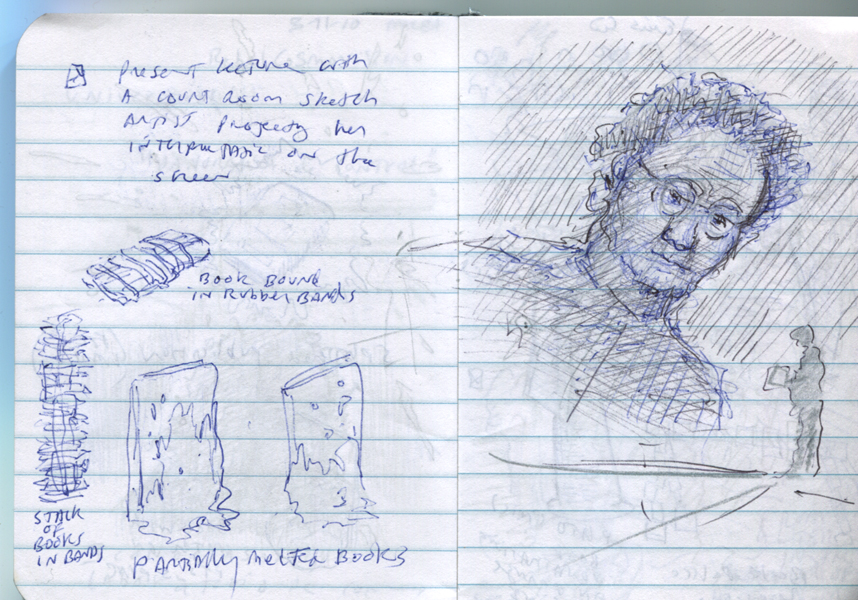 Present lecture with
A COURT ROOM sketch
ARTIST Projecting her
INTERPRETATION on the
screen
BOOK BOUND
IN RUBBER BANDS
STACK
OF
BOOKS
IN BANDS
PARTIALLY MELTED BOOKS